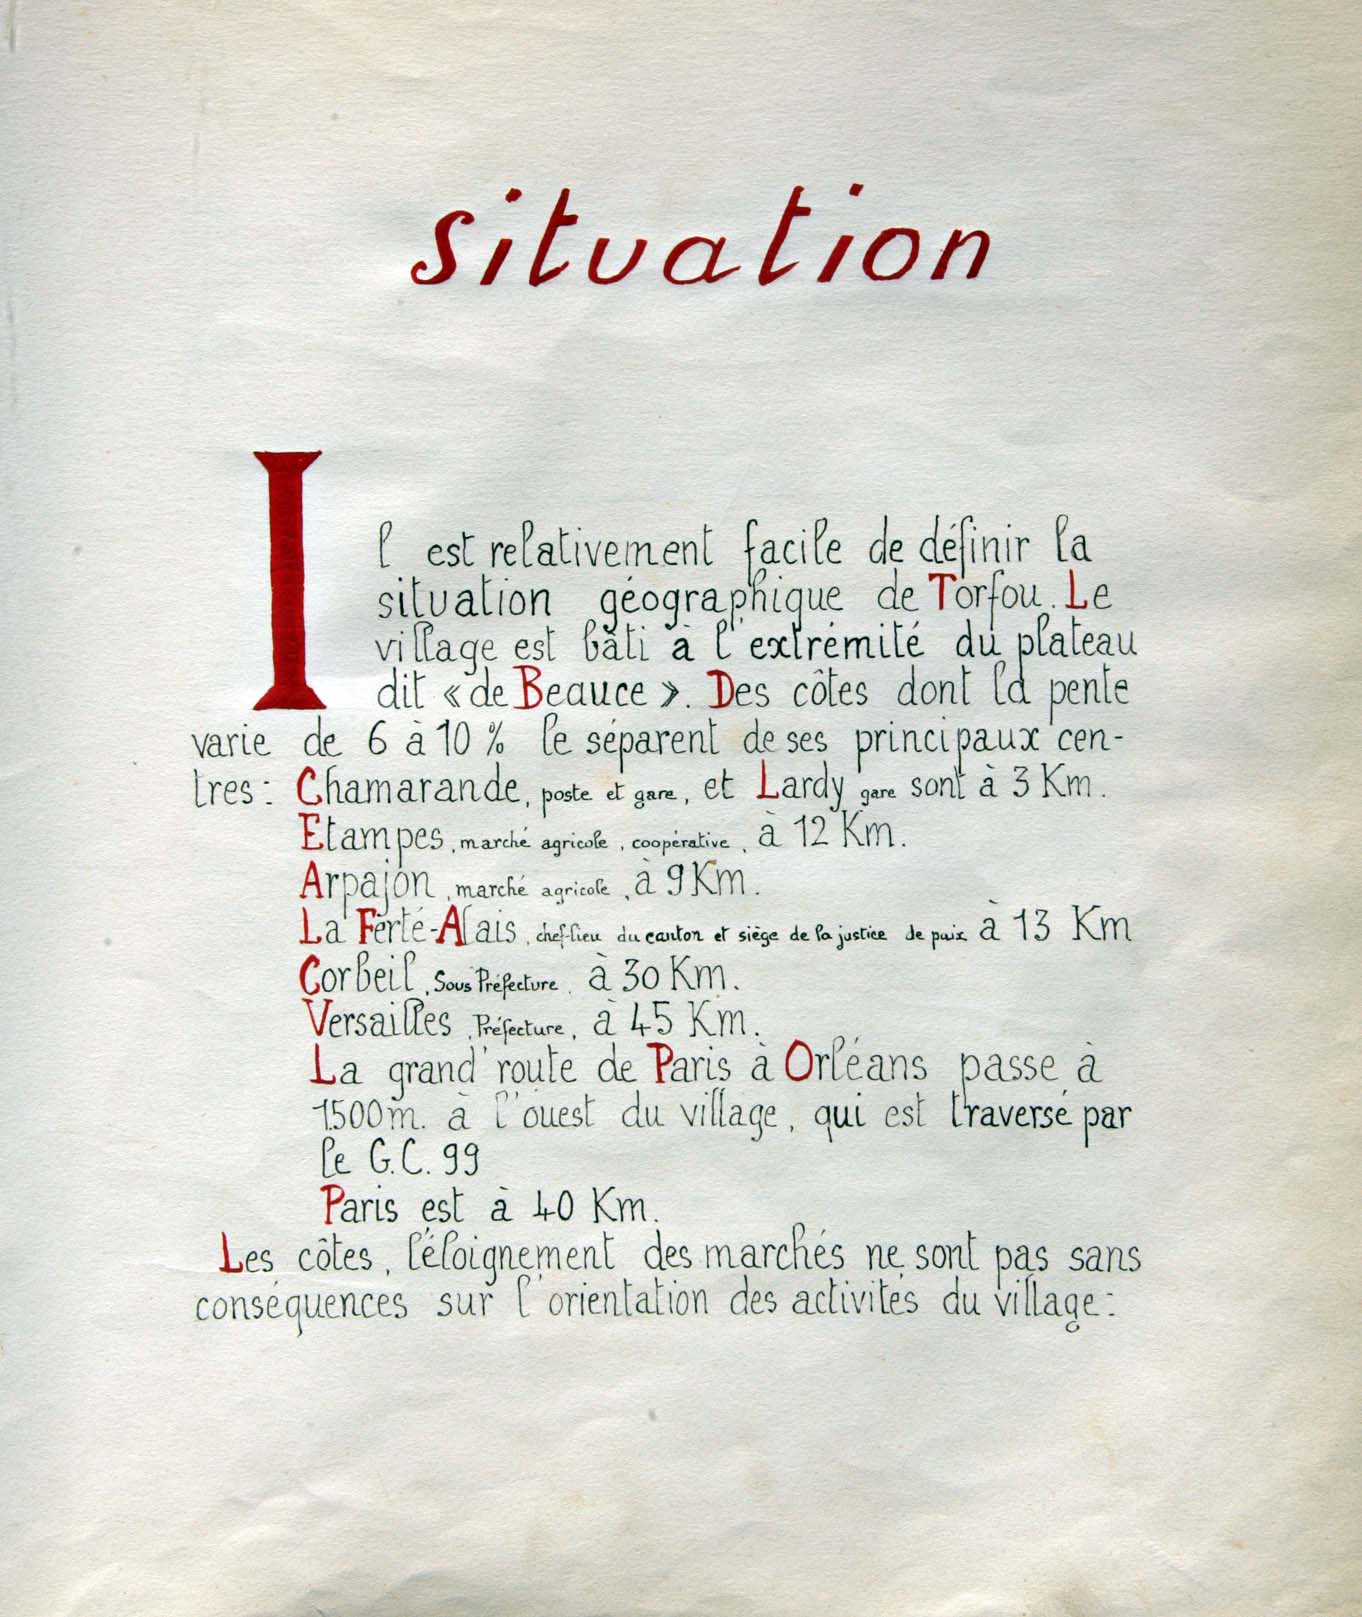 situation
Il est relativement facile de définir la
situation géographique de Torfou. Le
village est bâti à l'extrémité du plateau
dit « de Beauce ». Des côtes dont la pente
varie de 6 à 10 % le séparent de ses principaux cen-
tres : Chamarande, poste et gare, et Lardy gare sont à 3 Km.
Etampes, marché agricole, coopérative, à 12 Km.
Arpajon, marché agricole, à 9 Km.
La Ferté-Alais, chef-lieu du canton et siège de la justice de paix à 13 Km
Corbeil, Sous Préfecture, à 30 Km.
Versailles, Préfecture, à 45 Km.
La grand'route de Paris à Orléans passe à
1500 m. à l'ouest du village, qui est traversé par
le G.C. 99
Paris est à 40 Km.
Les côtes, l'éloignement des marchés ne sont pas sans
conséquences sur l'orientation des activités du village :